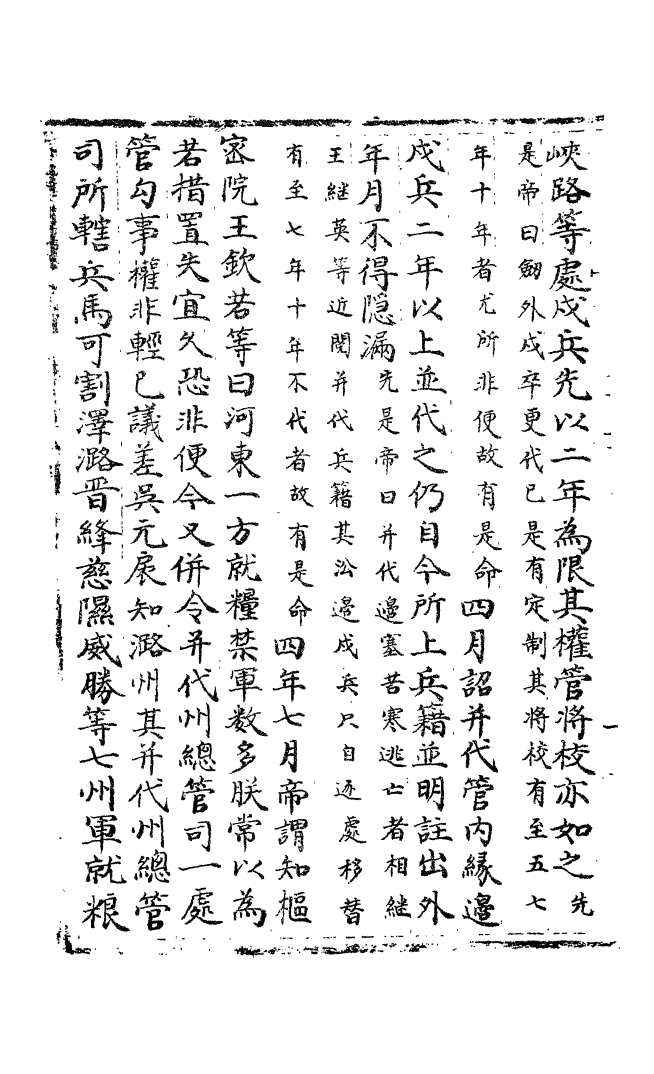 峽路等處戍兵先以二年為限其權管將校亦如之先
是帝曰劒外戍卒更代已是有定制其將校有至五七
年十年者尤所非便故有是命四月詔并代管内緣邉
戍兵二年以上並代之仍自今所上兵籍並明註出外
年月不得隠漏先是帝曰并代邉塞苦寒逃亡者相継
王継英等近閲并代兵籍其㳂邉戍兵只自逐處移替
有至七年十年不代者故有是命四年七月帝謂知樞
宻院王欽若等曰河東一方就糧禁軍数多朕常以為
若措置失宜久恐非便今又併令并代州總管司一處
管勾事權非輕已議差吳元扆知潞州其并代州總管
司所轄兵馬可割澤潞晋絳慈隰威勝等七州軍就粮